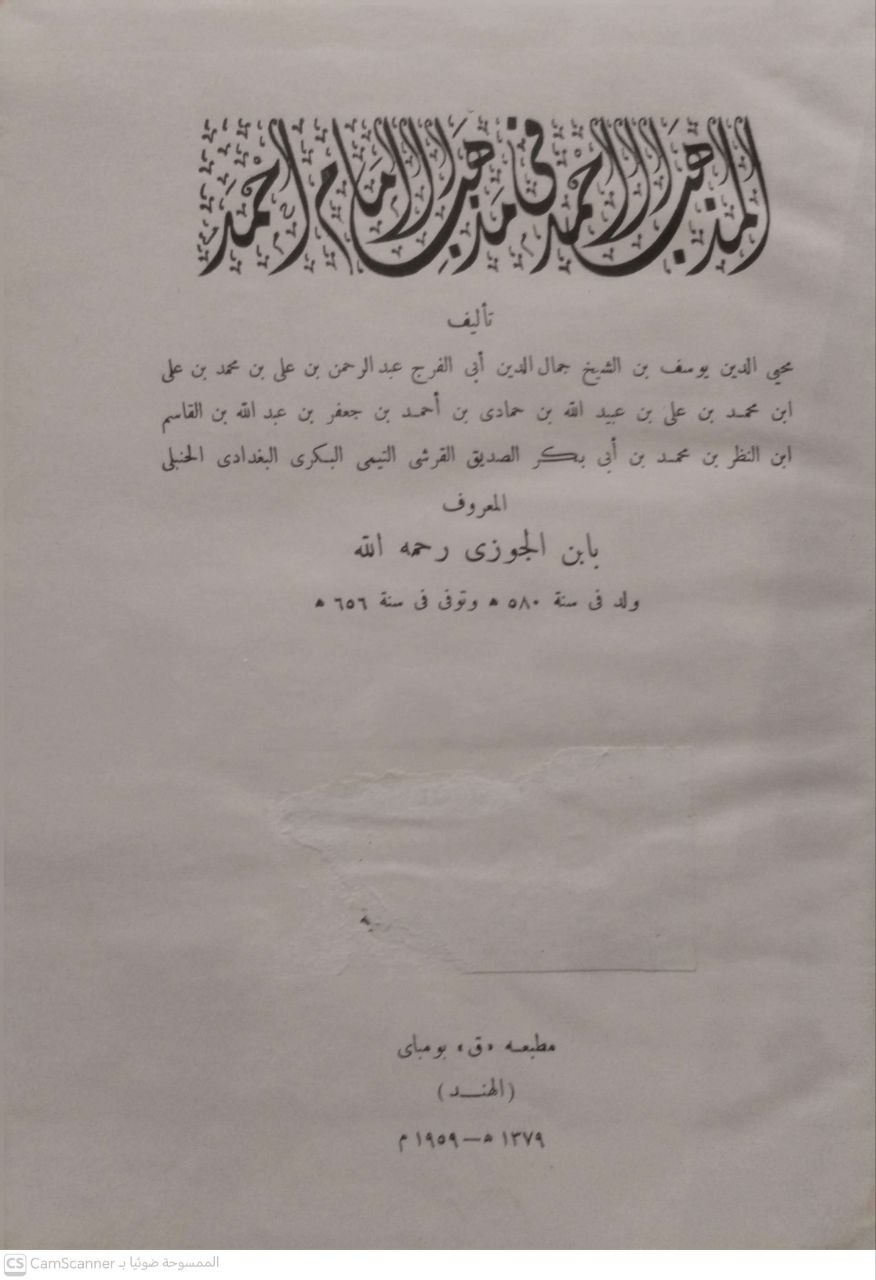 المذهب الأحمد في مذهب الإمام أحمد
تأليف
محيي الدين يوسف بن الشيخ جمال الدين أبى الفرج عبد الرحمن بن على بن محمد بن على
ابن محمد بن على بن عبيد الله بن حمادى بن أحمد بن جعفر بن عبد الله بن القاسم
ابن النظر بن محمد بن أبى بكر الصديق القرشى التيمى البكرى البغدادى الحنبلى
المعروف
بابن الجوزى رحمه الله
ولد فى سنة ٥٨٠ ه وتوفى فى سنة ٦٥٦ ه
مطبعه «ق» بومباى
(الهند)
١٣٧٩ ه — ١٩٥٩ م
CS CamScanner الممسوحة ضوئيا بـ